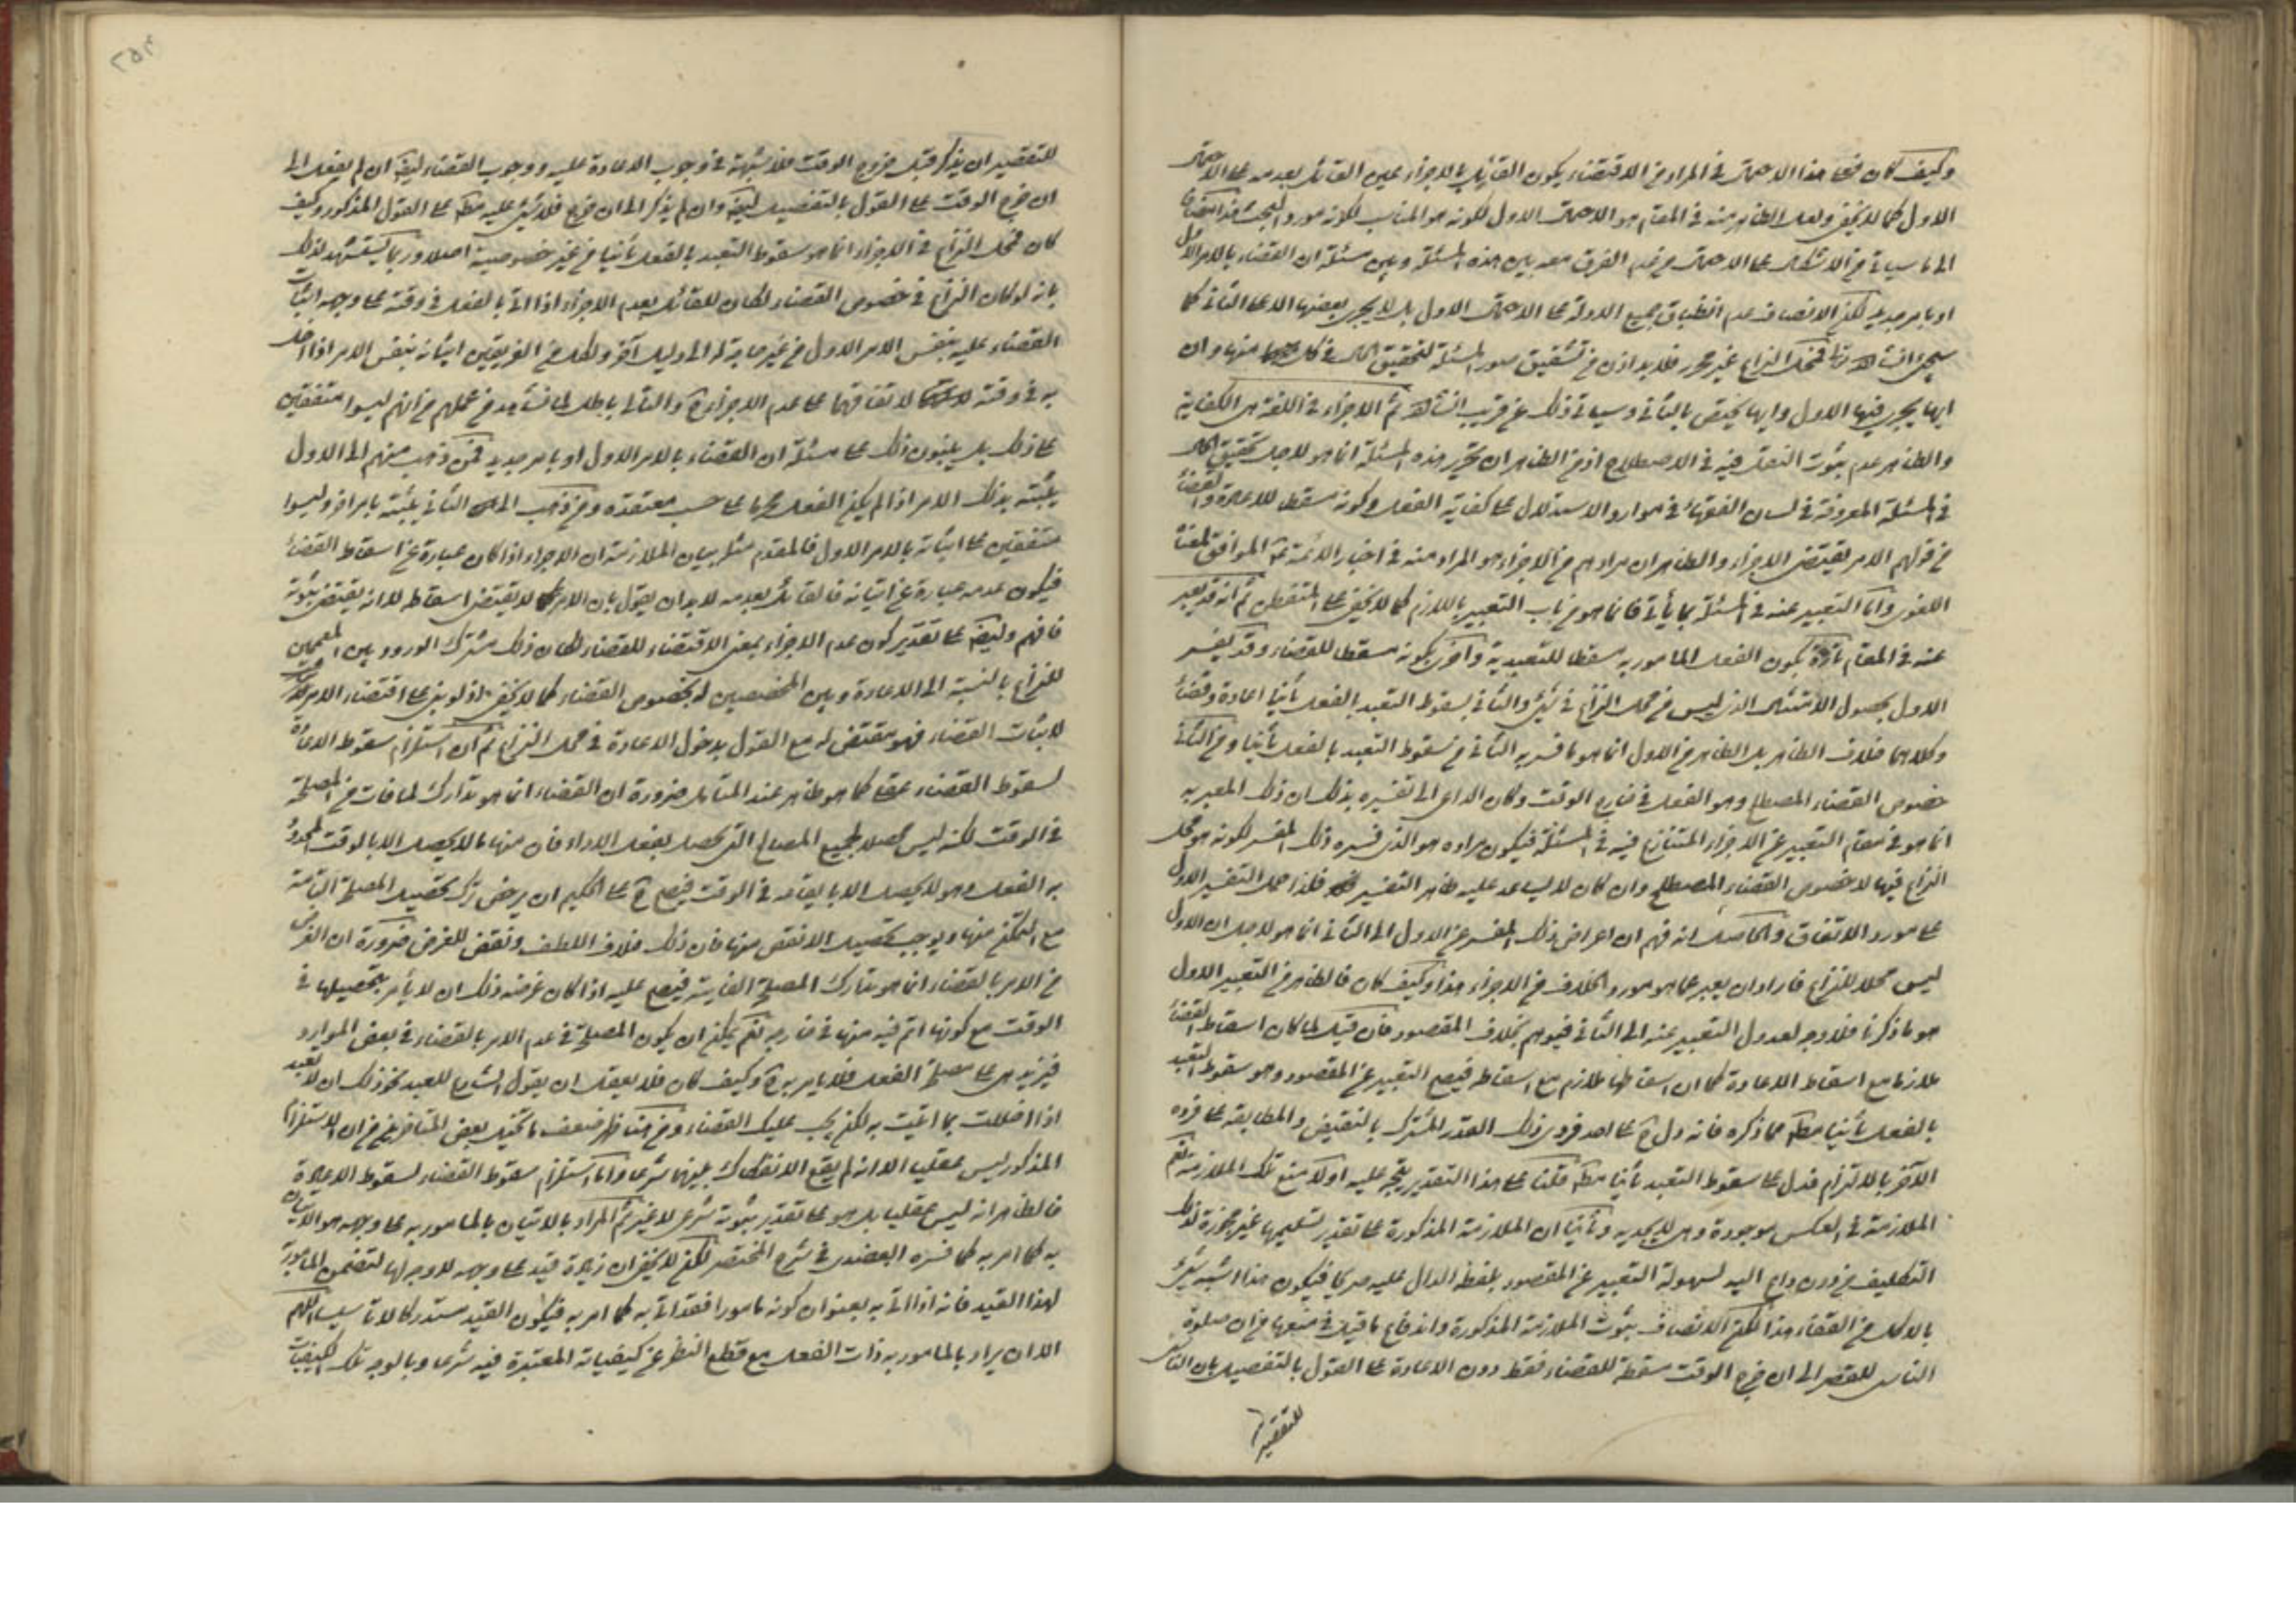 وكيف كان فعلى هذا الاحتمال في المراد من الاقتضاء يكون القائل بالاجزاء عين القائل بعدمه على الاحتمال
الاول كما لا يخفى ولعل الظاهر منه في المقام هو الاحتمال الاول لكونه هو المناسب لكونه مورد البحث هذا
الى ما سيأتي من الاشكال على الاحتمال من عدم الفرق معه بين هذه المسئلة وبين مسئلة ان القضاء بالامر الاول
او بامر جديد لكن الانصاف عدم انطباق جميع الادلة على الاحتمال الاول بل لا يجرى بعضها الا على الثاني كما
سيجئ انشاء الله فمحل النزاع غير محرر فلا بد اذن من تشقيق صور المسئلة لتحقيق الحال في كل منها وان
ايها يجرى فيها الاول وايها يختص بالثاني وسيأتي ذلك عن قريب انشاء الله ثم الاجزاء في اللغة هى الكفاية
والظاهر عدم ثبوت النقل فيه في الاصطلاح اذ من الظاهر ان تحرير هذه المسئلة انما هو لاجل تحقيق الحال
في المسئلة المعروفة في لسان الفقهاء في موارد الاستدلال على كفاية الفعل وكونه مسقطا للاعادة والقضاء
من قولهم الامر يقتضى الاجزاء والظاهر ان مرادهم من الاجزاء هو المراد منه في اخبار الائمة الموافق لمعناه
اللغوى واما التعبير عنه في المسئلة بما يأتي فانما هو من باب التعبير باللازم كما لا يخفى على المتفطن ثم انه قد يعبر
عنه في المقام تارة بكون الفعل المأمور به مسقطا للتعبد به واخرى بكونه مسقطا للقضاء وقد يفسر
الاول بحصول الامتثال الذى ليس من محل النزاع في شئ والثاني بسقوط التعبد بالفعل ثانيا اعادة وقضاء
وكلاهما خلاف الظاهر بل الظاهر من الاول انما هو ما فسر به الثاني من سقوط التعبد بالفعل ثانيا ومن الثاني
خصوص القضاء المصطلح وهو الفعل في خارج الوقت وكان الداعى الى تفسيره بذلك ان ذلك المعبر به
انما هو في مقام التعبير عن الاجزاء المتنازع فيه في المسئلة فيكون مراده هو الذى فسره ذلك المفسر لكونه هو محل
النزاع فيها لا خصوص القضاء المصطلح وان كان لا يساعد عليه ظاهر التفسير فلذا حمل التفسير الاول
على مورد الاتفاق والحاصل انه فهم ان اعراض ذلك المفسر عن الاول الى الثاني انما هو لاجل ان الاول
ليس محلا للنزاع فاراد ان يعبر عما هو مورد الخلاف من الاجزاء هذا وكيف كان فالظاهر من التعبير الاول
هو ما ذكرنا فلا وجه لعدول التعبير عنه الى الثاني فيوهم بخلاف المقصود فان قيل لما كان اسقاط القضاء
ملازما مع اسقاط الاعادة كما ان اسقاطها ملازم مع اسقاطه فيصح التعبير عن المقصود وهو سقوط التعبد
بالفعل ثانيا مطلقا مما ذكره فانه دل على احد فردى ذلك القدر المشترك بالتضمن والمطابقة على فرده
الآخر بالالتزام فدل على سقوط التعبد ثانيا مطلقا قلنا على هذا التقدير يتجه عليه اولا منع تلك الملازمة نعم
الملازمة في العكس موجودة وهى لا يجديه وثانيا ان الملازمة المذكورة على تقدير تسليمها غير مجوزة لذلك
التكليف من دون داع اليه لسهولة التعبير عن المقصود بلفظ الدال عليه صريحا فيكون هذا اشبه شئ
بالاكل من القفاء هذا لكن الانصاف ثبوت الملازمة المذكورة واندفاع ما قيل في منعها من ان صلوة
الناسى للقصر الى ان خرج الوقت مسقطة للقضاء فقط دون الاعادة على القول بالتفصيل بان الناسى
للتقصير
للتقصير ان يذكر قبل خروج الوقت فلا شبهة في وجوب الاعادة عليه ووجوب القضاء ايضا ان لم يفعل الى
ان خرج الوقت على القول بالتفصيل ايضا وان لم يذكر الى ان خرج فلا شئ عليه مطلقا على القول المذكور وكيف
كان فمحل النزاع في الاجزاء انما هو سقوط التعبد بالفعل ثانيا من غير خصوصية اصلا وربما يستشهد لذلك
بانه لو كان النزاع في خصوص القضاء لكان للقائل بعدم الاجزاء اذا اتى بالفعل في وقته على وجهه اثبات
القضاء عليه بنفس الامر الاول من غير حاجة له الى دليل آخر ولكل من الفريقين اثباته بنفس الامر اذا اخل
به في وقته لاتفاقهما على عدم الاجزاء ح والتالى باطل لما نشاهد من عملهم من انهم ليسوا متفقين
على ذلك بل يبنون ذلك على مسئلة ان القضاء بالامر الاول او بامر جديد فمن ذهب منهم الى الاول
يثبته بذلك الامر اذا لم يكن الفعل مجزيا على حسب معتقده ومن ذهب الى الثاني يثبته بامر آخر وليسوا
متفقين على اثباته بالامر الاول فالمقدم مثله بيان الملازمة ان الاجزاء اذا كان عبارة عن اسقاط القضاء
فيكون عدمه عبارة عن اثباته فالقائل بعدمه لا بد ان يقول بان الامر لا يقتضى اسقاطه لا انه يقتضى ثبوته
فافهم وايضا على تقدير كون عدم الاجزاء بمعنى الاقتضاء للقضاء لكان ذلك مشترك الورود بين المعممين
للنزاع بالنسبة الى الاعادة وبين المخصصين له بخصوص القضاء كما لا يخفى اذ لو بنى على اقتضاء الامر
لاثبات القضاء فهو مقتض له مع القول بدخول الاعادة في محل النزاع ثم ان استلزام سقوط الاعادة
لسقوط القضاء عقلى كما هو ظاهر عند المتأمل ضرورة ان القضاء انما هو تدارك لما فات من المصلحة
في الوقت لكنه ليس محصلا لجميع المصالح التى تحصل بفعل الاداء فان منها ما لا يحصل الا بالوقت المحدود
به الفعل وهو لا يحصل الا بايقاعه في الوقت فيصح ح على الحكيم ان يرخص ترك تحصيل المصلحة التامة
مع التمكن منها ويوجب تحصيل الانقص منها فان ذلك خلاف اللطف ونقض للغرض ضرورة ان الغرض
من الامر بالقضاء انما هو تدارك المصلحة الفايتة فيصح عليه اذا كان غرضه ذلك ان لا يأمر بتحصيلها في
الوقت مع كونها اتم فيه منها في خارجه نعم يمكن ان يكون المصلحة في عدم الامر بالقضاء في بعض الموارد
فيزيد هى على مصلحة الفعل فلا يأمر به ح وكيف كان فلا يعقل ان يقول الشارع للعبد نحو ذلك ان لا تعيد
اذا اخللت بما اتيت به لكن يجب عليك القضاء ومن هنا ظهر ضعف ما تخيل بعض المتأخرين من ان الاستلزام
المذكور ليس عقليا الا انه لم يقع الانفكاك بينهما شرعا واما استلزام سقوط القضاء لسقوط الاعادة
فالظاهر انه ليس عقليا بل هو على تقدير ثبوته شرعى لا غير ثم المراد بالاتيان بالمأمور به على وجهه هو الاتيان
به كما امر به كما فسره العضدى في شرح المختصر لكن لا يخفى ان زيادة قيد على وجهه لا وجه لها لتضمن المأمور به
لهذا القيد فانه اذا اتى به بعنوان كونه مأمورا فقد اتى به كما امر به فيكون القيد مستدركا لا تأسيسا اللهم
الا ان يراد بالمأمور به ذات الفعل مع قطع النظر عن كيفياته المعتبرة فيه شرعا وبالوجه تلك الكيفيات